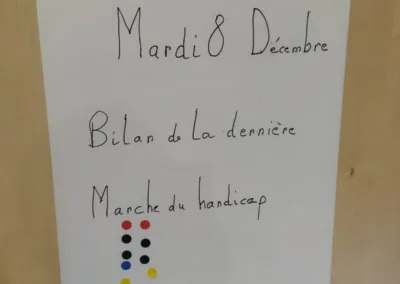 Mardi 8 Décembre
Bilan de La dernière
Marche du handicap